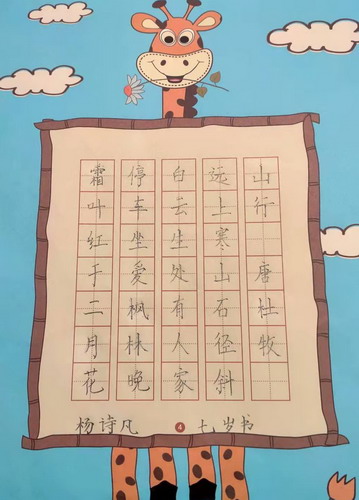 山行 唐 杜牧
远上寒山石径斜
白云生处有人家
停车坐愛枫林晚
霜叶红于二月花
杨诗凡 4 七岁书